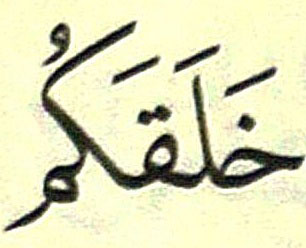 خَلَقَكُم